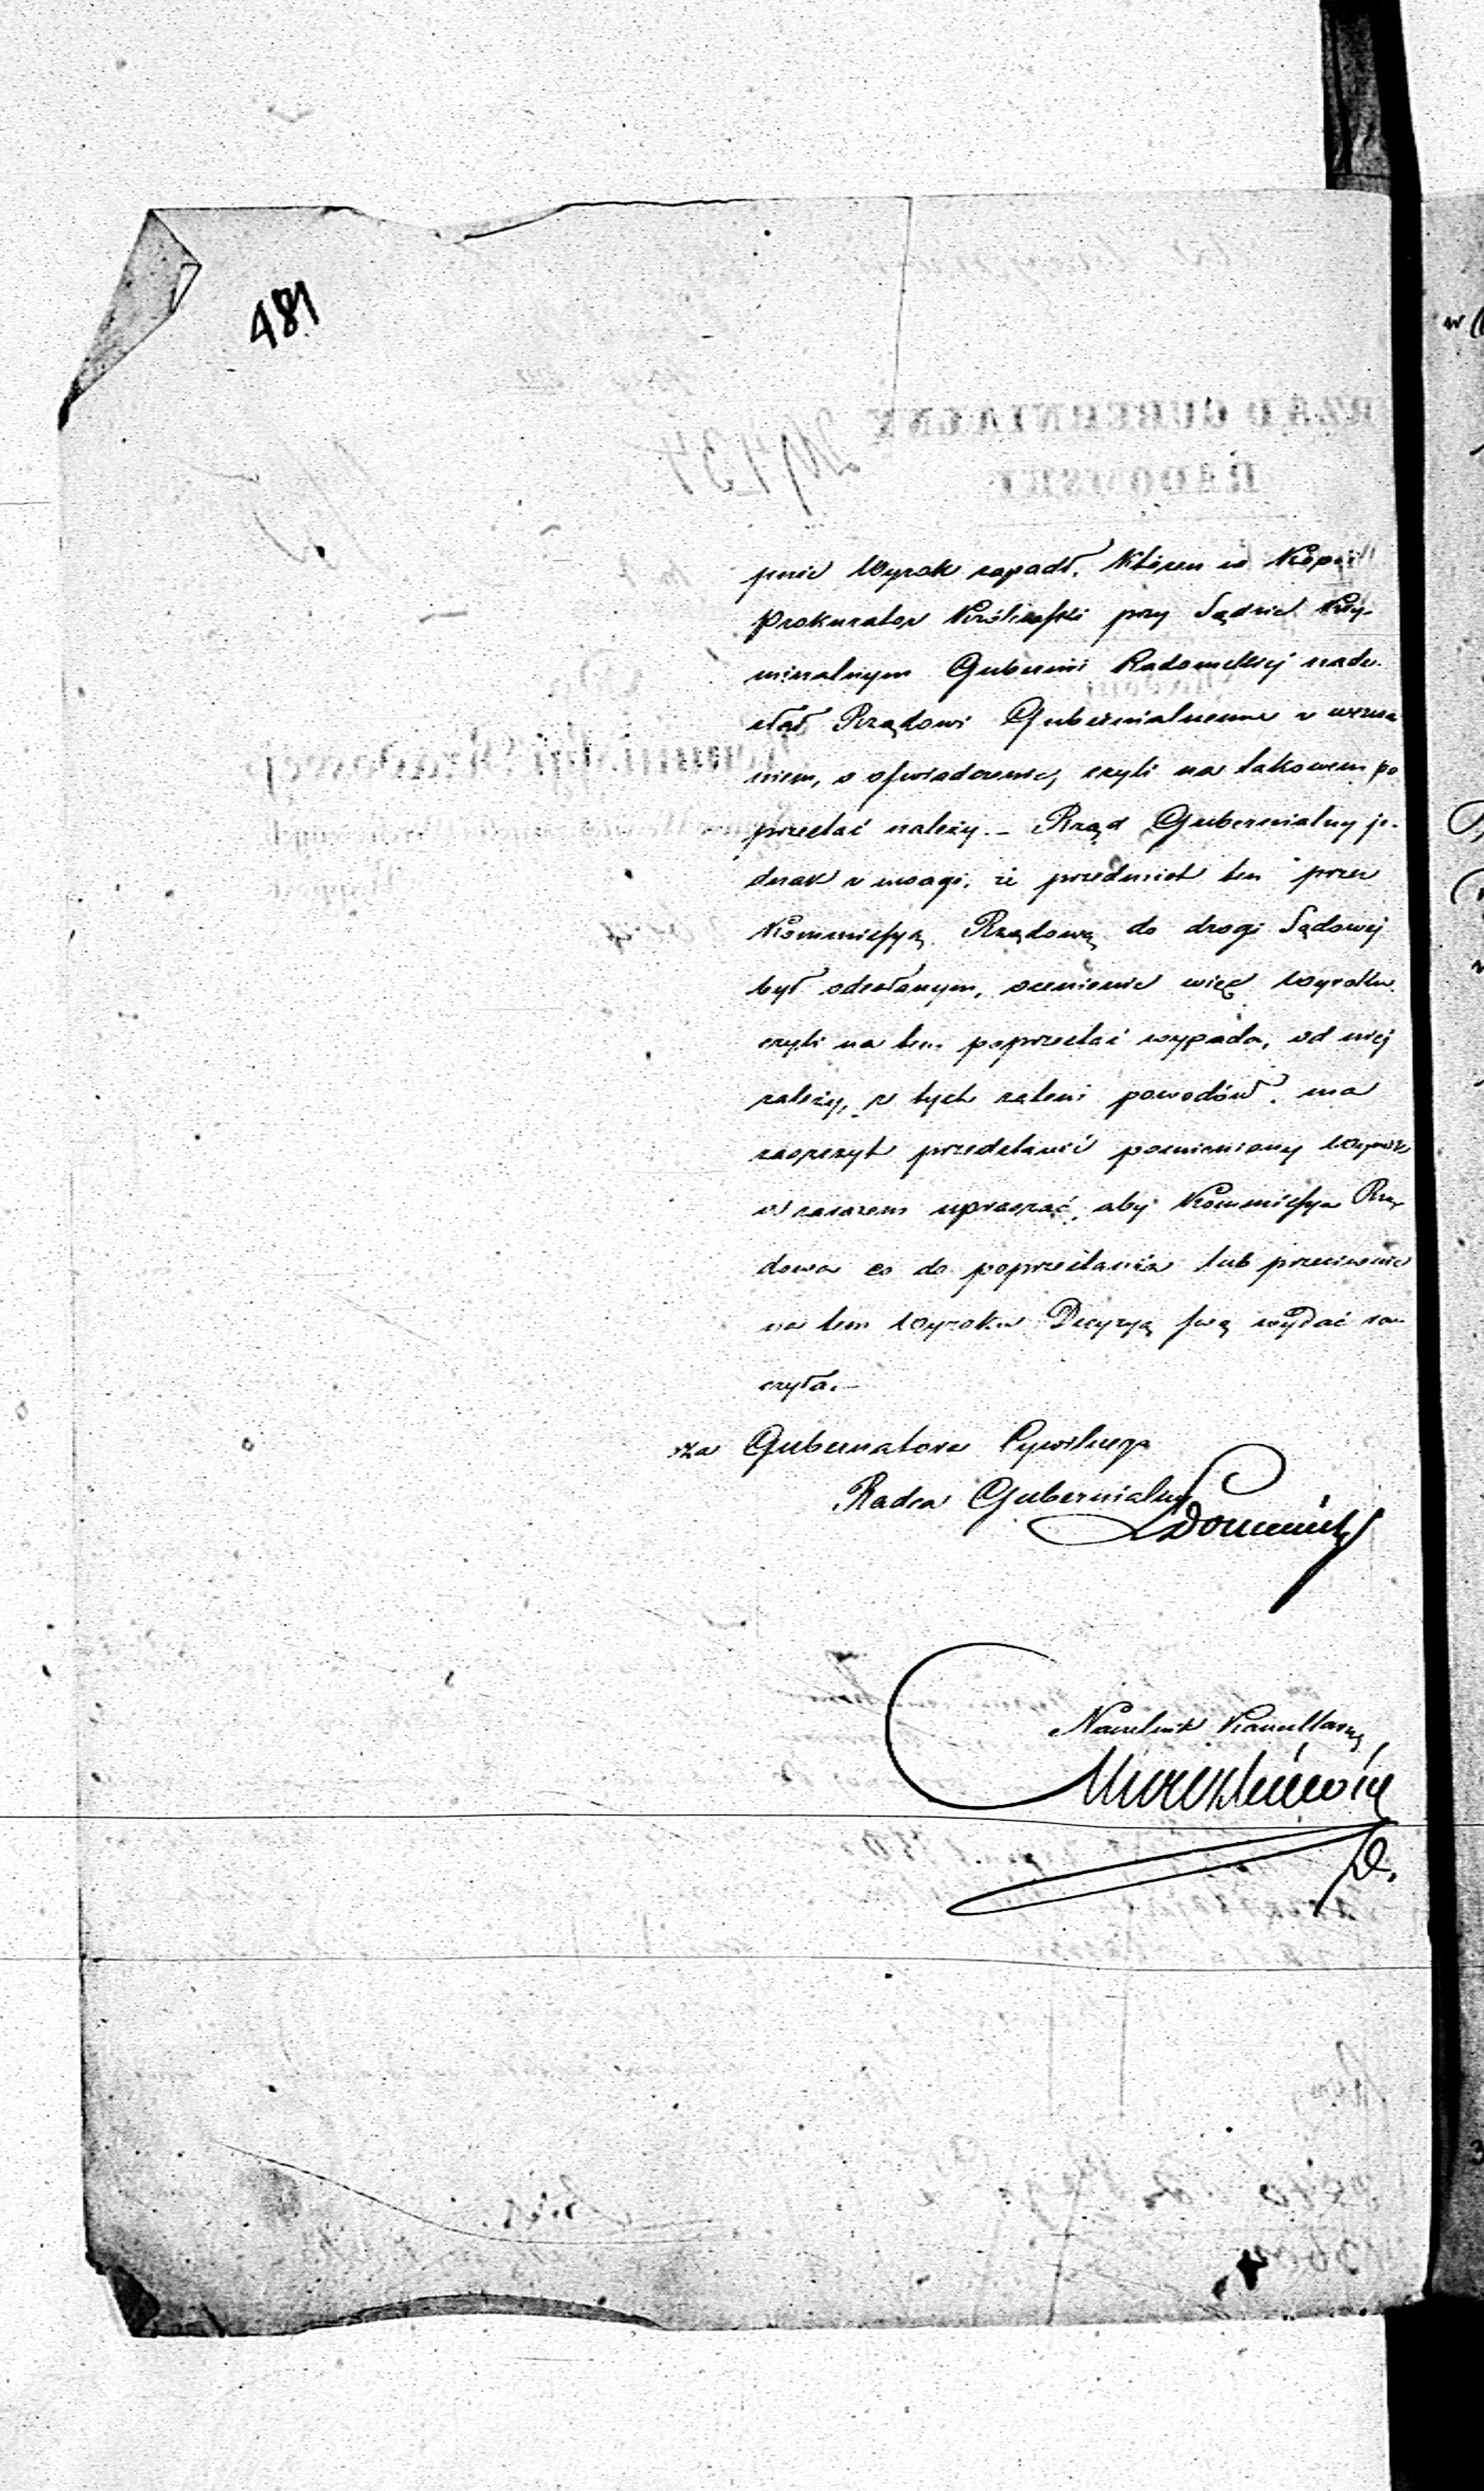 481
pnie Wyrok zapadł, któren w Kopii
Prokurator Królewski przy Sądzie Kry-
minalnym Gubernii Radomskiej nade-
słał Rządowi Gubernialnemu z wezwa
niem, o oświadczenie, czyli na takowem po
przestać należy. – Rząd Gubernialny je-
dnak z uwagi, że przedmiot ten przez
Kommissyą Rządową do drogi Sądowej
był odesłanym, ocenienie więc Wyroku
czyli na tem poprzestać wypada, od niej
zależy, z tych zatem powodów, ma
zaszczyt przedstawić pomieniony Wyrok
i zarazem upraszać, aby Kommissya Rzą
dowa co do poprzestania lub przeciwnie
na tem Wyroku Decyzyą swą wydać ra-
czyła. –
za Gubernatora Cywilnego
Radca Gubernialny
Naczelnik Kancellaryi